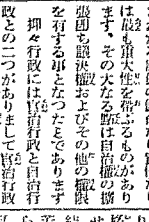 は最も重大性を帶ぶるものがあり
ます、その大なる點は自治權の擴
張卽ち議決權およびその他の權限
を有する事となつたとであります
抑々行政には官治行政と自治行
政との二つがありまして官治行政